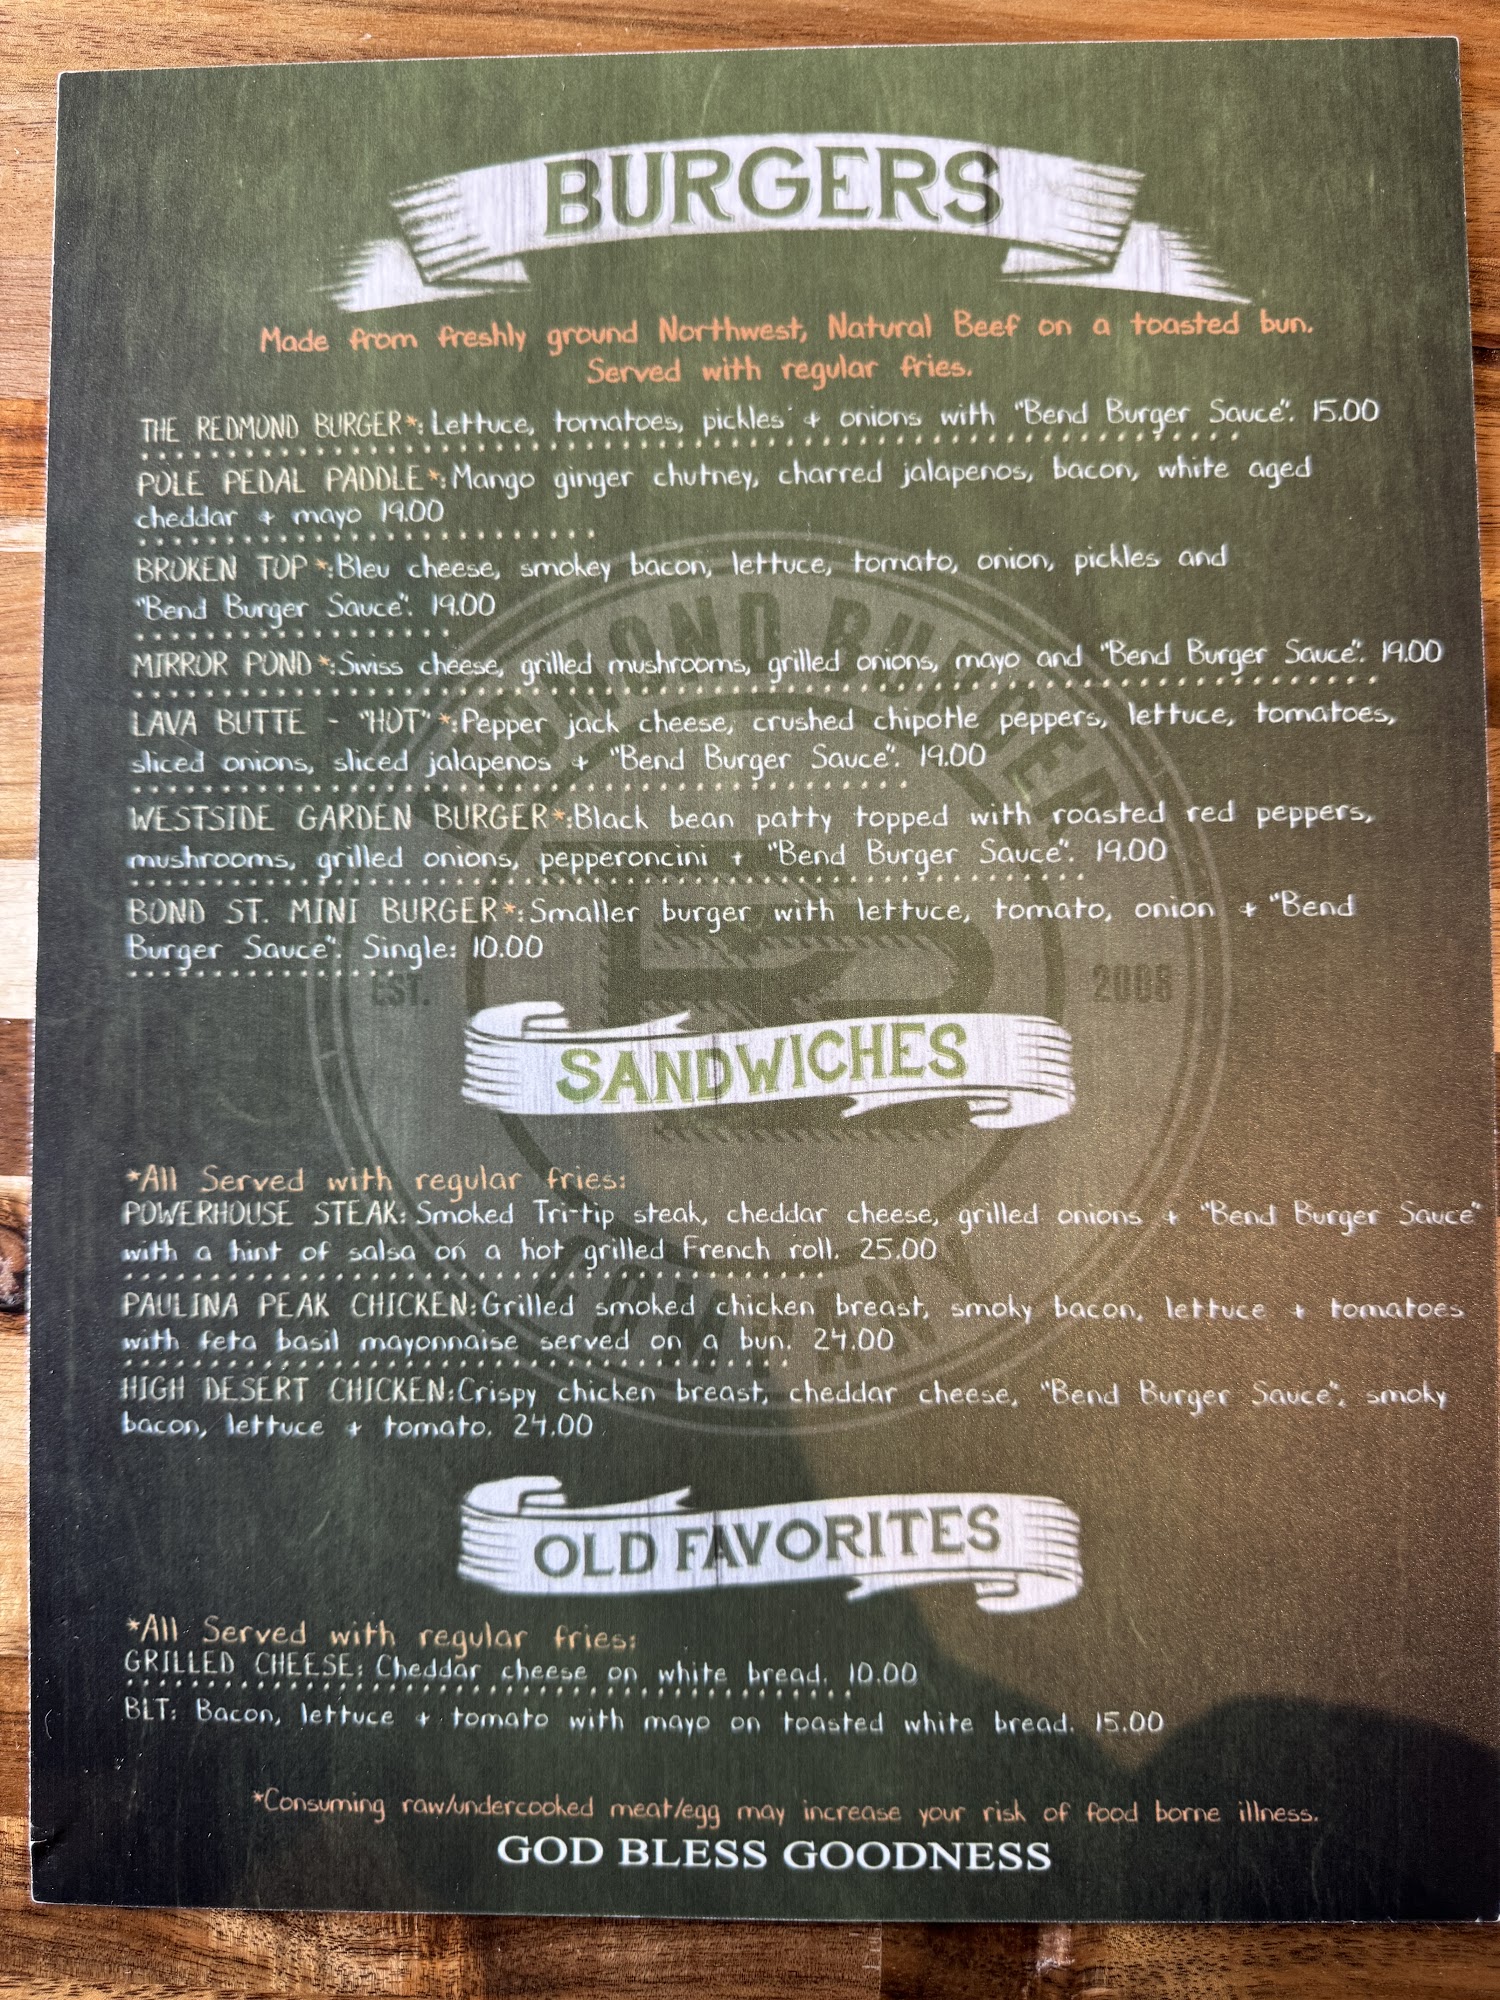 BURGERS
Made from freshly ground Northwest, Natural Beef on a toasted bun.
Served with regular fries.
THE REDMOND BURGER*: Lettuce, tomatoes, pickles + onions with "Bend Burger Sauce". 15.00
POLE PEDAL PADDLE*: Mango ginger chutney, charred jalapenos, bacon, white aged
cheddar + mayo 19.00
BROKEN TOP*: Bleu cheese, smokey bacon, lettuce, tomato, onion, pickles and
"Bend Burger Sauce". 19.00
MIRROR POND*: Swiss cheese, grilled mushrooms, grilled onions, mayo and "Bend Burger Sauce". 19.00
LAVA BUTTE - "HOT"*: Pepper jack cheese, crushed chipotle peppers, lettuce, tomatoes,
sliced onions, sliced jalapenos + "Bend Burger Sauce". 19.00
WESTSIDE GARDEN BURGER*: Black bean patty topped with roasted red peppers,
mushrooms, grilled onions, pepperoncini + "Bend Burger Sauce". 19.00
BOND ST. MINI BURGER*: Smaller burger with lettuce, tomato, onion + "Bend
Burger Sauce". Single: 10.00
REDMOND BURGER
EST. 2008
COMPANY
SANDWICHES
*All Served with regular fries:
POWERHOUSE STEAK: Smoked Tri-tip steak, cheddar cheese, grilled onions + "Bend Burger Sauce"
with a hint of salsa on a hot grilled French roll. 25.00
PAULINA PEAK CHICKEN: Grilled smoked chicken breast, smoky bacon, lettuce + tomatoes
with feta basil mayonnaise served on a bun. 24.00
HIGH DESERT CHICKEN: Crispy chicken breast, cheddar cheese, "Bend Burger Sauce", smoky
bacon, lettuce + tomato. 24.00
OLD FAVORITES
*All Served with regular fries:
GRILLED CHEESE: Cheddar cheese on white bread. 10.00
BLT: Bacon, lettuce + tomato with mayo on toasted white bread. 15.00
*Consuming raw/undercooked meat/egg may increase your risk of food borne illness.
GOD BLESS GOODNESS